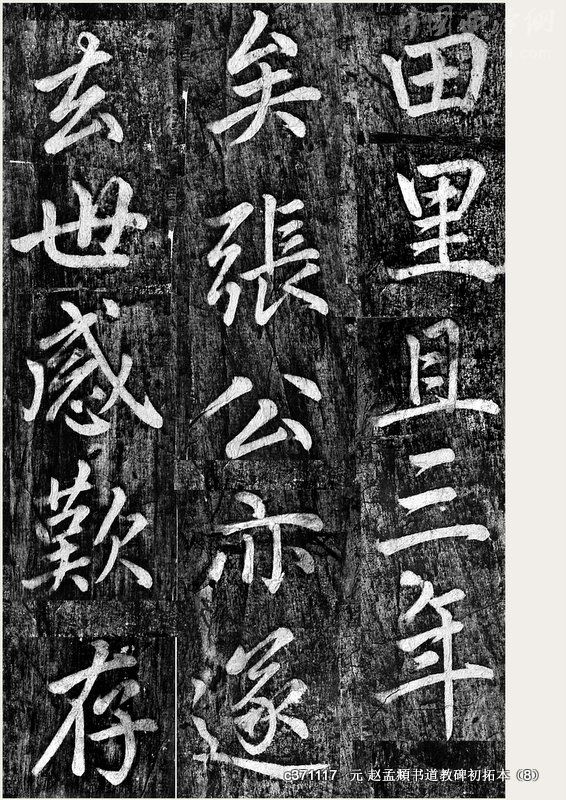 田里且三年
矣張公亦遂
去世感歎存
c371117 元 赵孟頫书道教碑初拓本（8）